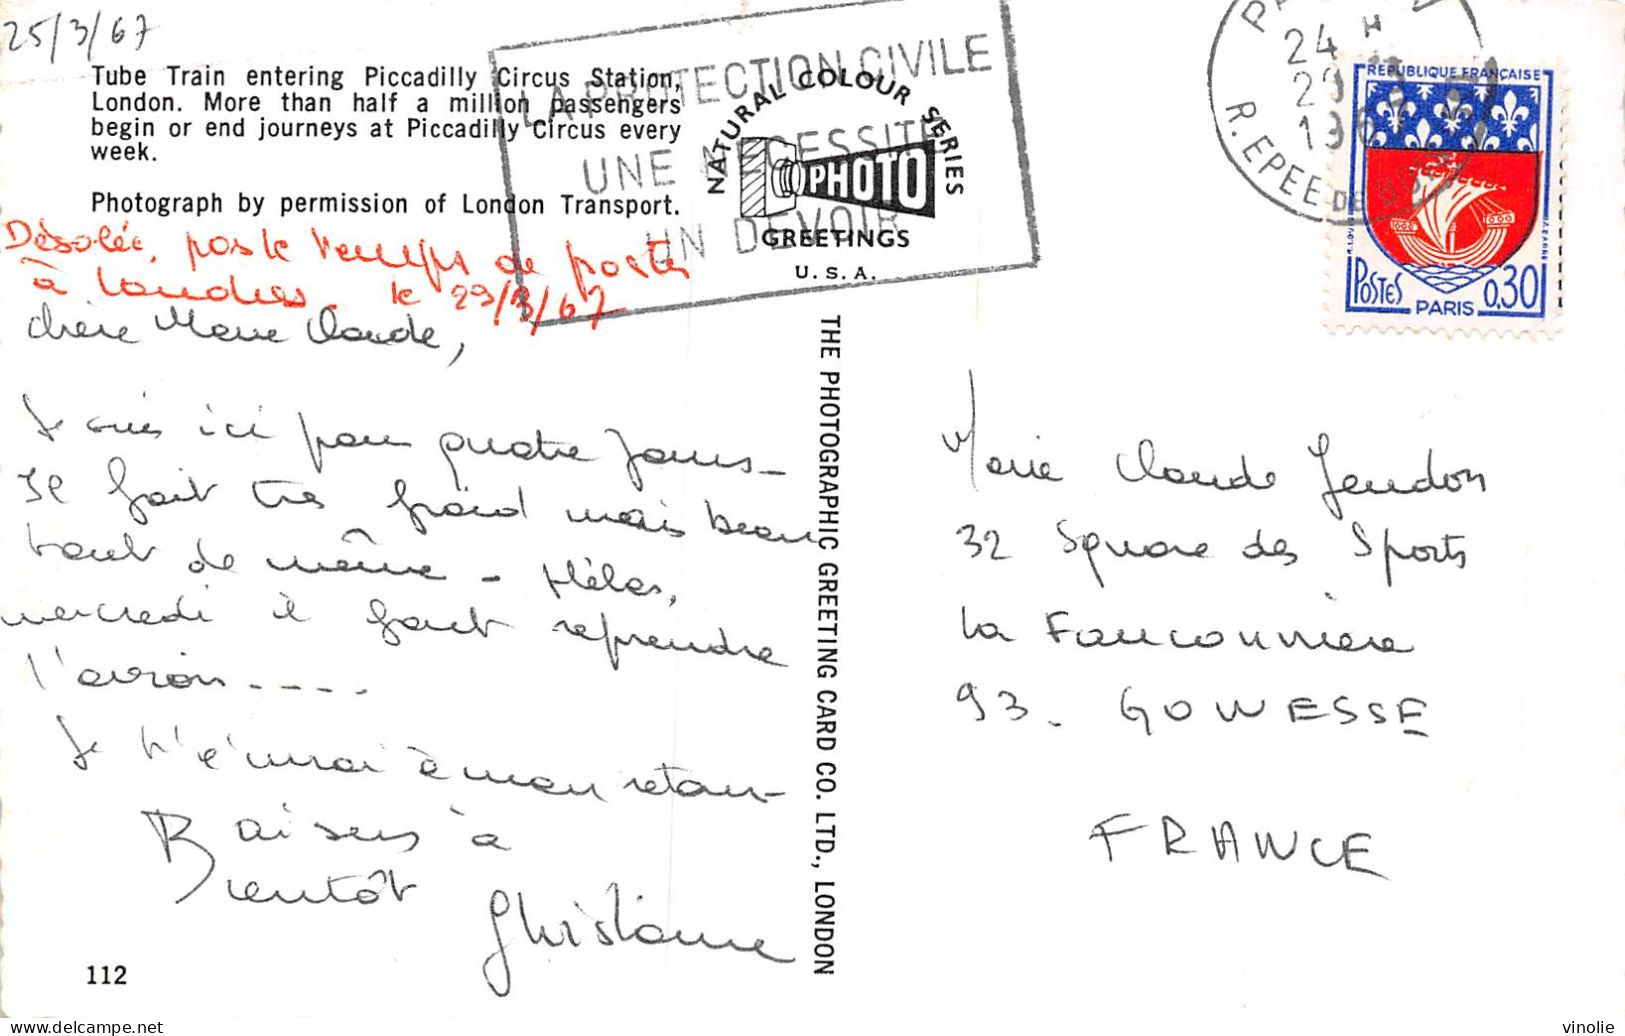 25/3/67
Tube Train entering Piccadilly Circus Station,
London. More than half a million passengers
begin or end journeys at Piccadilly Circus every
week.
Photograph by permission of London Transport.
LA PROTECTION CIVILE
UNE NECESSITE
UN DEVOIR
NATURAL COLOUR SERIES
PHOTO
GREETINGS
U.S.A.
24 H
29
196
R. EPEE DE BOIS
REPUBLIQUE FRANÇAISE
POSTES
PARIS
0,30
Désolée, pas le temps de poster
à Londres le 29/3/67
Chère Marie Claude,
Je suis ici pour quatre jours -
Il fait très froid mais beau
tout de même - Hélas,
mercredi il faut reprendre
l'avion - - - -
Je t'écrirai à mon retour -
Baisers à
Bientôt
Ghislaine
THE PHOTOGRAPHIC GREETING CARD CO. LTD., LONDON
Marie Claude Gendon
32 Square des Sports
La Fauconnière
93 - GOWESSE
FRANCE
112
Delcampe.net
vinolie